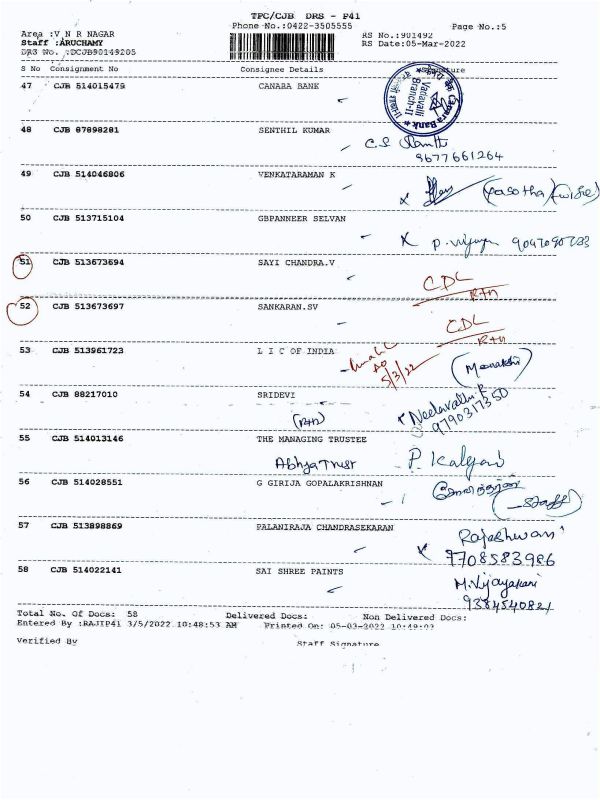 TPC/CJB DRS - P41
Phone No.:0422-3505555 Page No.:5
Area :V N R NAGAR RS No.:901492
Staff :ARUCHAMY RS Date:05-Mar-2022
DRS No. :DCJB90149205
S No Consignment No Consignee Details Signature
47 CJB 514015479 CANARA BANK
Canara Bank
Vadavalli
Branch-II
48 CJB 87898281 SENTHIL KUMAR
9677661264
49 CJB 514046806 VENKATARAMAN K
(wife)
50 CJB 513715104 GBPANNEER SELVAN
51 CJB 513673694 SAYI CHANDRA.V
CDL
R+n
52 CJB 513673697 SANKARAN.SV
CDL
R+n
53 CJB 513961723 L I C OF INDIA
5/3/22
(Meenakshi)
54 CJB 88217010 SRIDEVI
9790317350
55 CJB 514013146 THE MANAGING TRUSTEE
Abhya Trust P. Kalyani
56 CJB 514028551 G GIRIJA GOPALAKRISHNAN
(Staff)
57 CJB 513898869 PALANIRAJA CHANDRASEKARAN
Rajeshwari
9708583986
58 CJB 514022141 SAI SHREE PAINTS
M.Vijayakani
Total No. Of Docs: 58 Delivered Docs: Non Delivered Docs:
Entered By :RAJIP41 3/5/2022 10:48:53 AM Printed On: 05-03-2022 10:49:03
Verified By Staff Signature